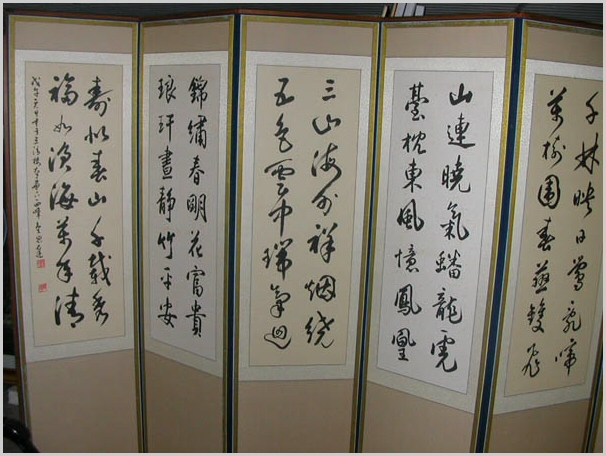 千林映日鶯亂啼
萬樹圍春燕雙飛
山連曉氣蟠龍虎
臺枕東風憶鳳凰
三山海外祥烟繞
五色雲中瑞氣迴
錦繡春明花富貴
琅玕晝靜竹平安
壽似春山千載秀
福如滄海萬年清